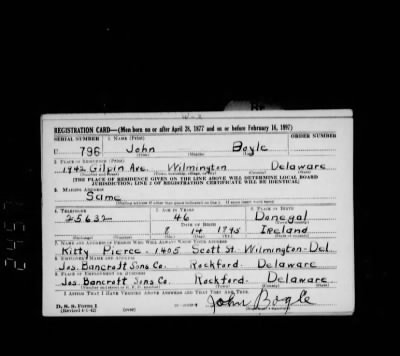 REGISTRATION CARD—(Men born on or after April 28, 1877 and on or before February 16, 1897)
SERIAL NUMBER 1. NAME (Print) ORDER NUMBER
U 796 John Boyle
(First) (Middle) (Last)
2. PLACE OF RESIDENCE (Print)
1942 Gilpin Ave. Wilmington Delaware
[THE PLACE OF RESIDENCE GIVEN ON THE LINE ABOVE WILL DETERMINE LOCAL BOARD
JURISDICTION; LINE 2 OF REGISTRATION CERTIFICATE WILL BE IDENTICAL]
3. MAILING ADDRESS
Same
[Mailing address if other than place indicated on line 2. If same insert word same]
4. TELEPHONE 5. AGE IN YEARS 6. PLACE OF BIRTH
25632 46 Donegal
DATE OF BIRTH
8 14 1895 Ireland
(Mo.) (Day) (Yr.)
7. NAME AND ADDRESS OF PERSON WHO WILL ALWAYS KNOW YOUR ADDRESS
Kitty Pierce - 1405 Scott St. Wilmington-Del.
8. EMPLOYER'S NAME AND ADDRESS
Jos. Bancroft Sons Co. Rockford - Delaware
9. PLACE OF EMPLOYMENT OR BUSINESS
Jos. Bancroft Sons Co. Rockford - Delaware
I AFFIRM THAT I HAVE VERIFIED ABOVE ANSWERS AND THAT THEY ARE TRUE.
D. S. S. Form 1
(Revised 4-1-42) (over)
John Bogle
(Registrant's signature)